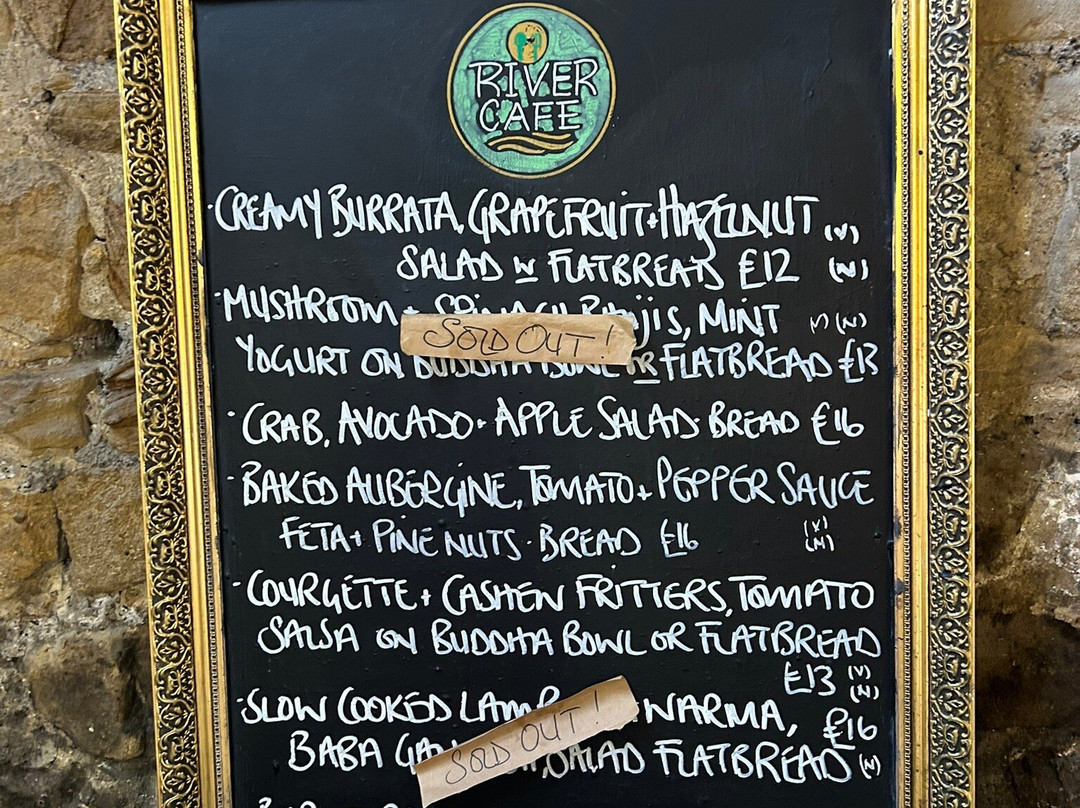 RIVER
CAFE
· CREAMY BURRATA, GRAPEFRUIT + HAZELNUT (V)
SALAD W FLATBREAD £12 (N)
· MUSHROOM + SPINACH BHAJIS, MINT V (N)
SOLD OUT!
YOGURT ON BUDDHA BOWL OR FLATBREAD £13
· CRAB, AVOCADO + APPLE SALAD · BREAD £16
· BAKED AUBERGINE, TOMATO + PEPPER SAUCE
FETA + PINE NUTS · BREAD £16 (V)
(N)
· COURGETTE + CASHEW FRITTERS, TOMATO
SALSA ON BUDDHA BOWL OR FLATBREAD
£13 (V)
(N)
· SLOW COOKED LAMB WARMA, £16
SOLD OUT!
BABA SALAD FLATBREAD (N)